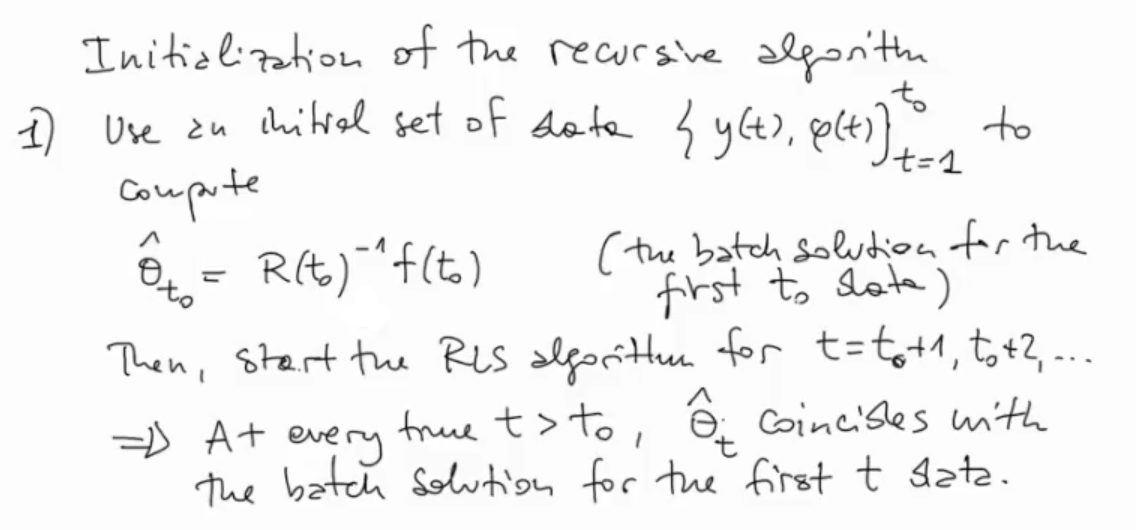 Initialization of the recursive algorithm
1) Use an initial set of data { y(t), φ(t)}_{t=1}^{t₀} to
compute
θ̂_{t₀} = R(t₀)⁻¹ f(t₀) (the batch solution for the
first t₀ data)
Then, start the RLS algorithm for t=t₀+1, t₀+2, ...
⇒ At every time t > t₀, θ̂_t coincides with
the batch solution for the first t data.